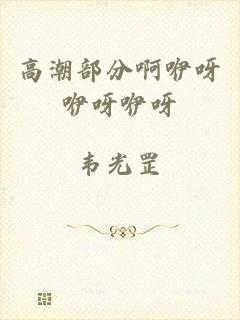 高潮部分啊咿呀
咿呀咿呀
韦光罡